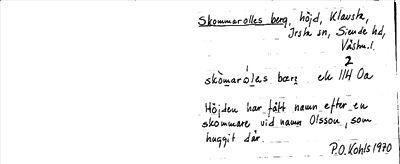 Skommarolles berg, höjd, Klavsta,
Irsta sn, Siende hd,
Västm.l.
2
skòmaróles bærg ek 11H 0a
Höjden har fått namn efter en
skommare vid namn Olsson, som
huggit där.
P.O. Kohls 1970